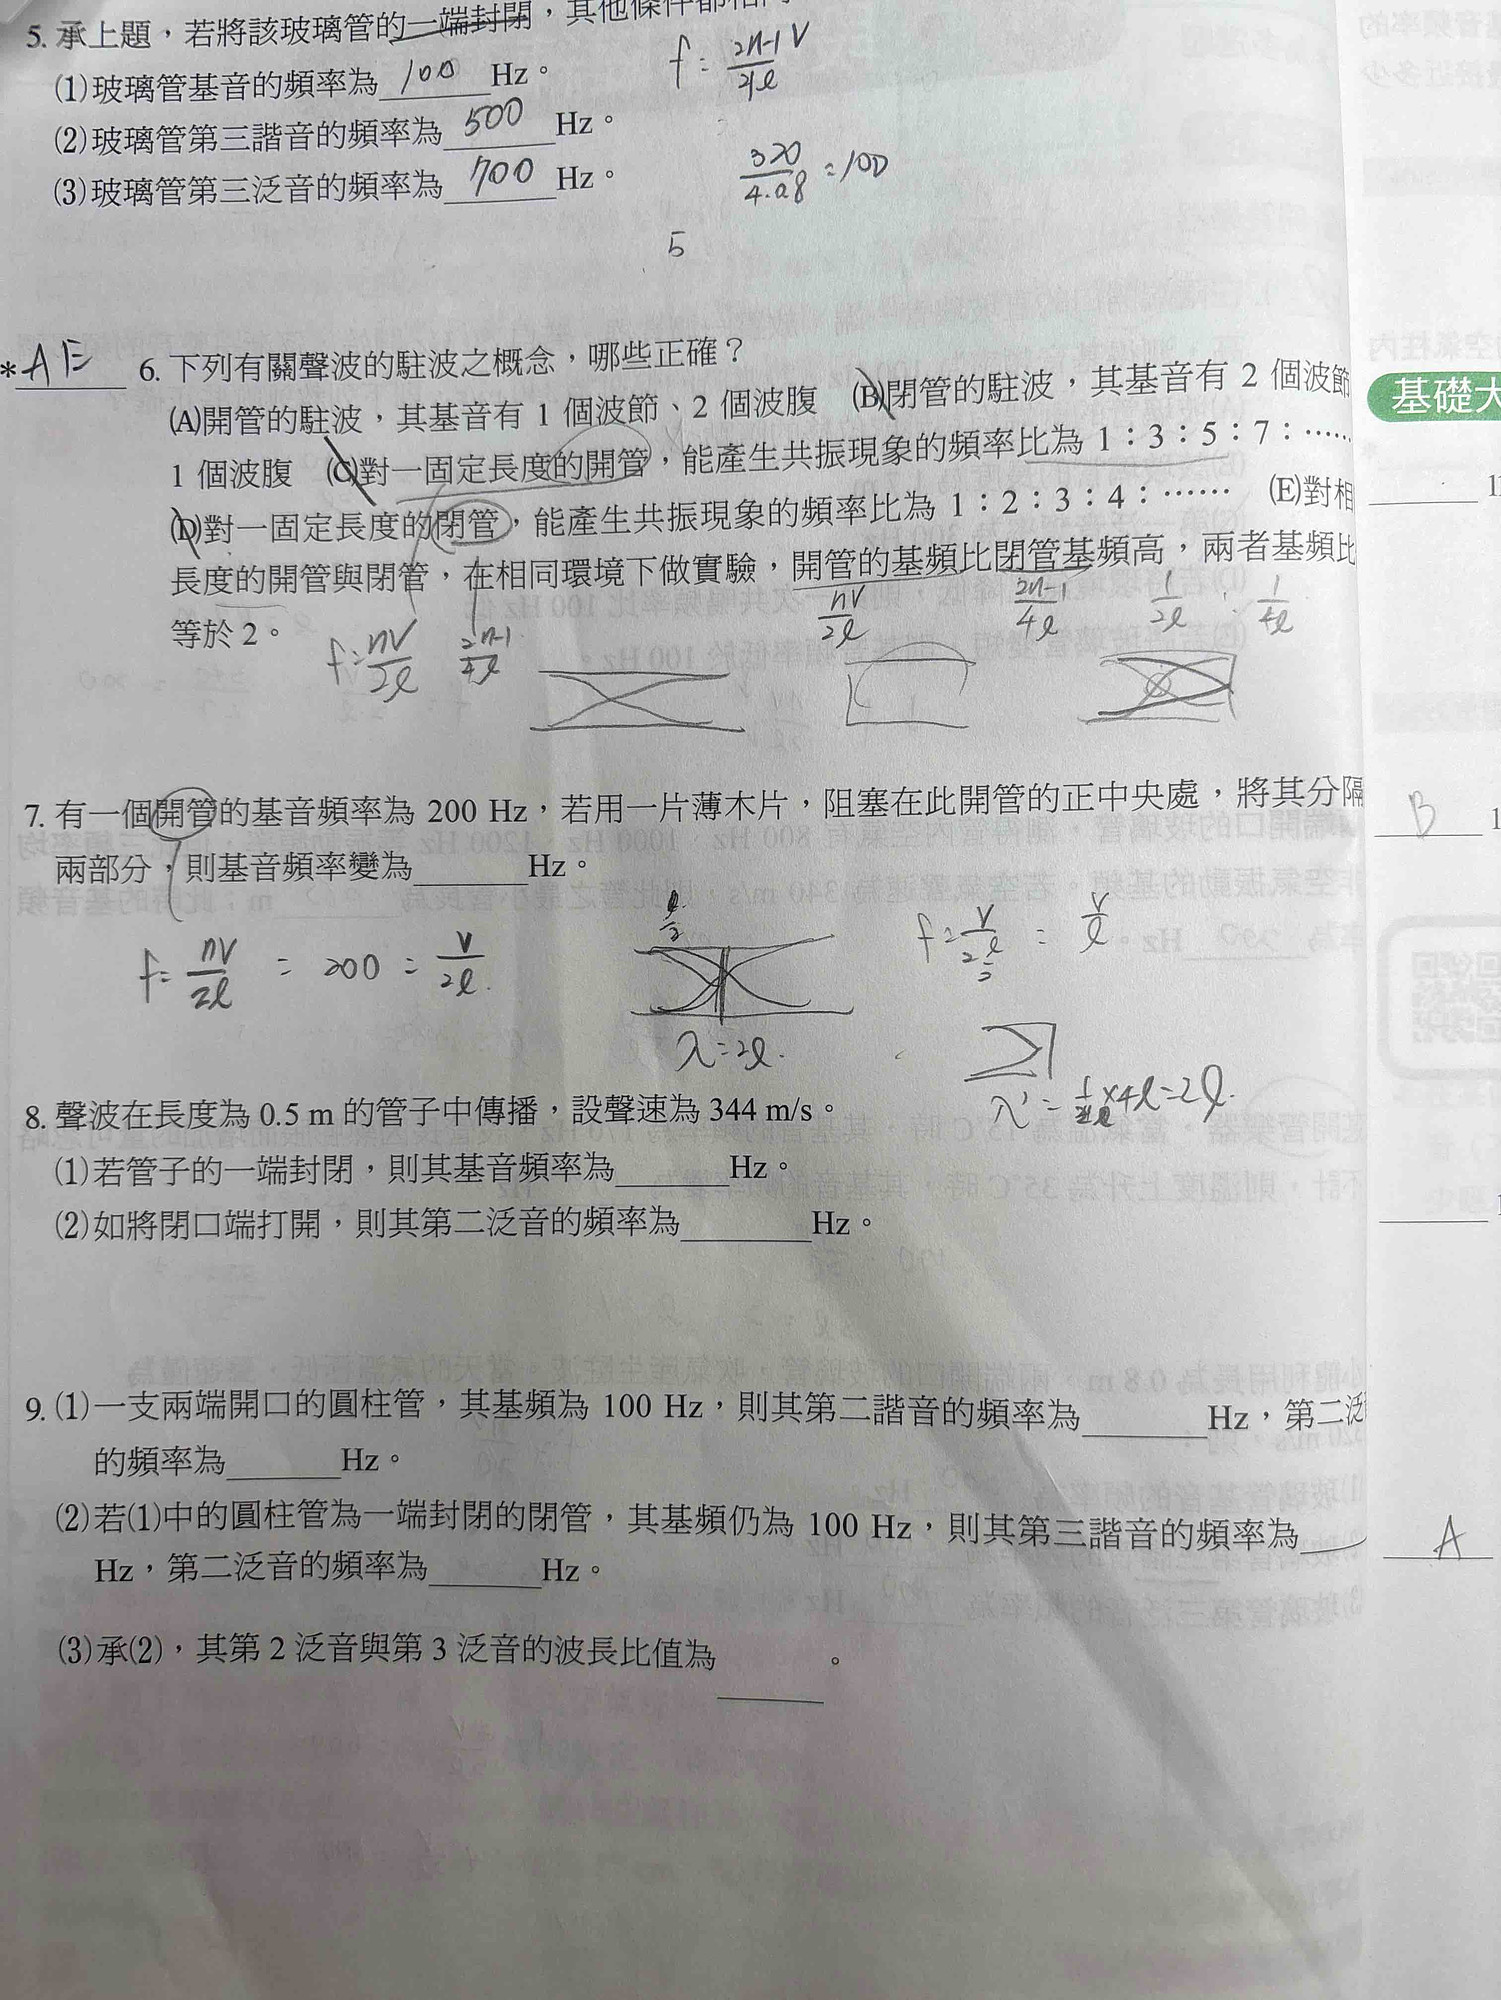 5. 承上題，若將該玻璃管的一端封閉，其他條件都相同
f = 2n-1 V / 4l
(1)玻璃管基音的頻率為 100 Hz。
(2)玻璃管第三諧音的頻率為 500 Hz。
320 / 4·0.8 = 100
(3)玻璃管第三泛音的頻率為 700 Hz。
5
* AE 6. 下列有關聲波的駐波之概念，哪些正確？
(A)開管的駐波，其基音有 1 個波節、2 個波腹 (B)閉管的駐波，其基音有 2 個波節
1 個波腹 (C)對一固定長度的開管，能產生共振現象的頻率比為 1：3：5：7：……
(D)對一固定長度的閉管，能產生共振現象的頻率比為 1：2：3：4：…… (E)對相
長度的開管與閉管，在相同環境下做實驗，開管的基頻比閉管基頻高，兩者基頻比
等於 2。
f = nV / 2l
2n-1 / 4l
nV / 2l
2n-1 / 4l
1 / 2l : 1 / 4l
基礎大
7. 有一個開管的基音頻率為 200 Hz，若用一片薄木片，阻塞在此開管的正中央處，將其分隔
B
兩部分，則基音頻率變為 Hz。
f = nV / 2l = 200 = V / 2l
l / 2
λ = 2l
f = V / 2 l/2 = V / l
λ' = 4l = 2l
8. 聲波在長度為 0.5 m 的管子中傳播，設聲速為 344 m/s。
(1)若管子的一端封閉，則其基音頻率為 Hz。
(2)如將閉口端打開，則其第二泛音的頻率為 Hz。
9. (1)一支兩端開口的圓柱管，其基頻為 100 Hz，則其第二諧音的頻率為 Hz，第二泛
的頻率為 Hz。
(2)若(1)中的圓柱管為一端封閉的閉管，其基頻仍為 100 Hz，則其第三諧音的頻率為
A
Hz，第二泛音的頻率為 Hz。
(3)承(2)，其第 2 泛音與第 3 泛音的波長比值為 。